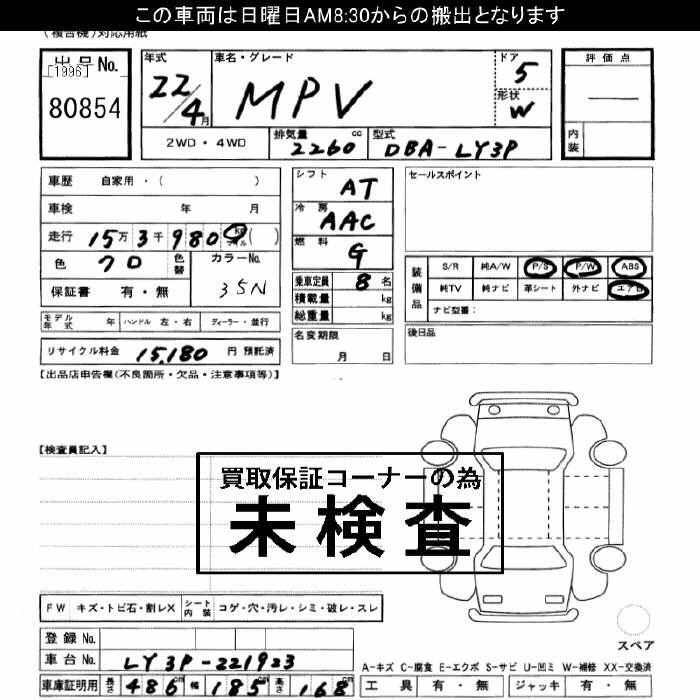 この車両は日曜日AM8:30からの搬出となります
(複合機)対応用紙
出品No.
[1996]
80854
年式 22/4月
車名・グレード MPV
ドア 5
形状 W
評価点
内装
2WD・4WD
排気量 2260 cc
型式 DBA-LY3P
車歴 自家用・( )
車検 年 月
走行 15万3千980 km マイル ( )
色 クロ 色替 カラーNo. 35N
保証書 有・無
シフト AT
冷房 AAC
燃料 G
乗車定員 8名
積載量 kg
総重量 kg
セールスポイント
装備品
S/R 純A/W P/S P/W ABS
純TV 純ナビ 革シート 外ナビ エアB
ナビ型番:
モデル年式 年 ハンドル 左・右 ディーラー・並行
名変期限 月 日
後日品
リサイクル料金 15,180 円 預託済
【出品店申告欄(不良箇所・欠品・注意事項等)】
【検査員記入】
買取保証コーナーの為
未検査
FW キズ・トビ石・割レX シート内装 コゲ・穴・汚レ・シミ・破レ・スレ
登録No.
車台No. LY3P-221923
車庫証明用 長さ 486cm 幅 185cm 高さ 168cm
スペア
A-キズ C-腐食 E-エクボ S-サビ U-凹ミ W-補修 XX-交換済
工具 有・無 ジャッキ 有・無